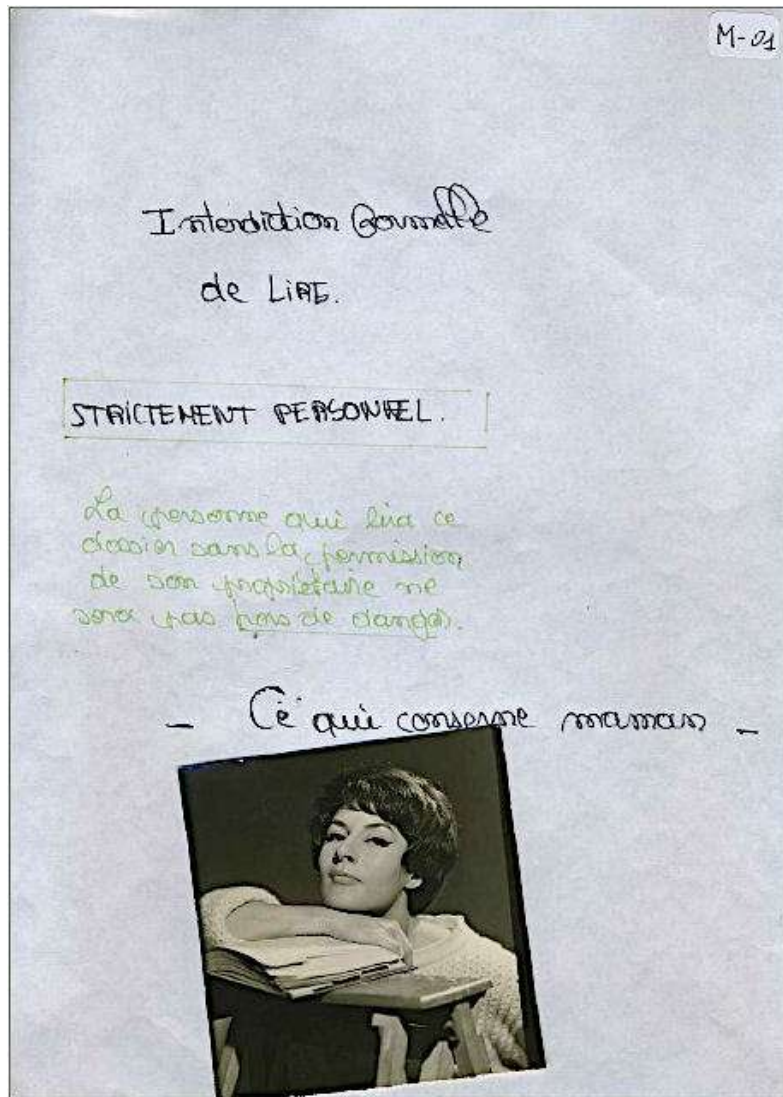 M-01
Interdiction formelle
de LiRE.
STRICTEMENT PERSONNEL.
La personne qui lira ce
dossier sans la permission
de son propriétaire ne
sera pas hors de danger.
- Ce qui conserne maman -